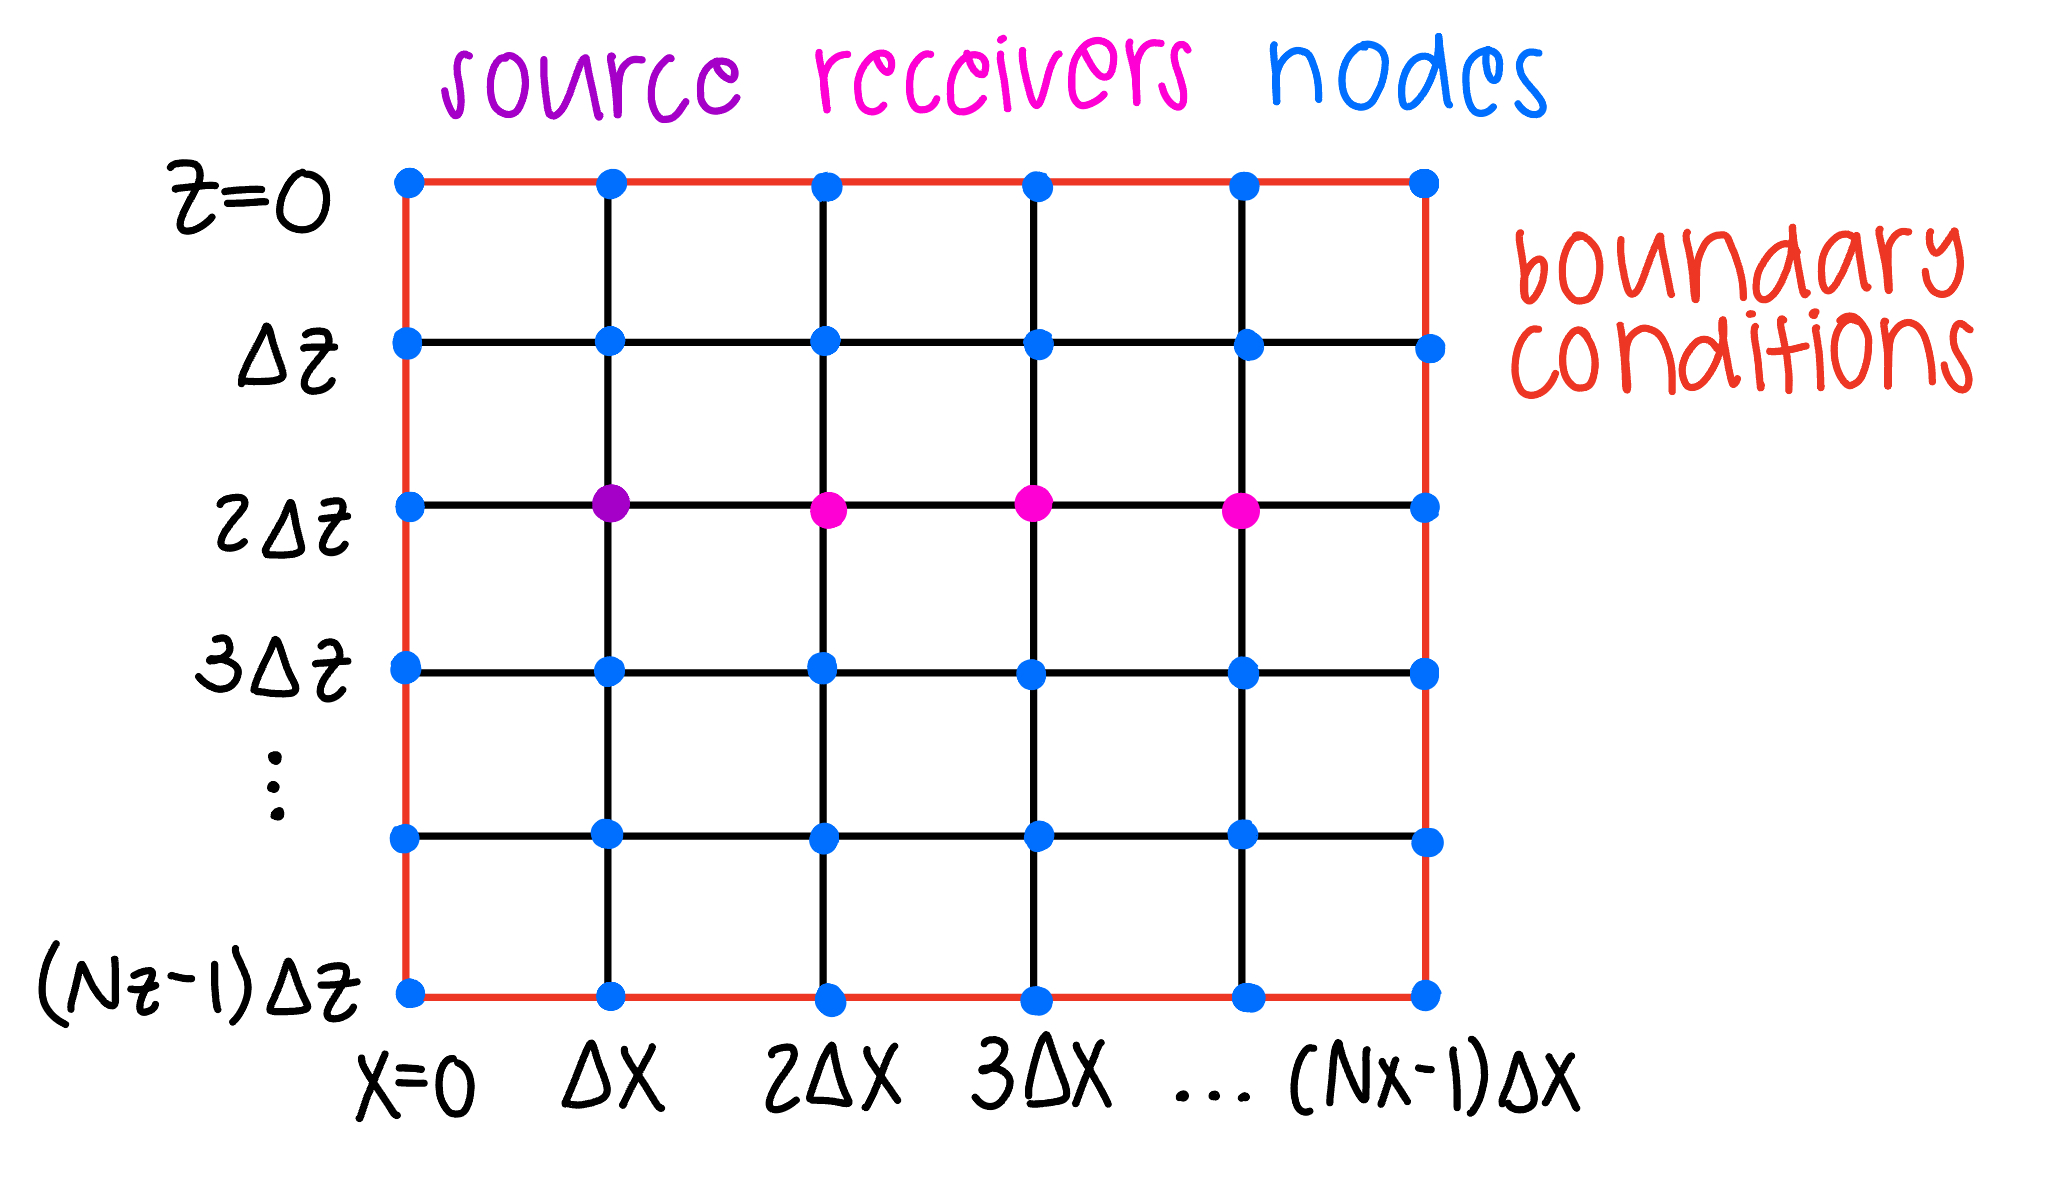 source receivers nodes
z=0
boundary
conditions
Δz
2Δz
3Δz
⋮
(Nz-1)Δz
x=0 Δx 2Δx 3Δx ... (Nx-1)Δx